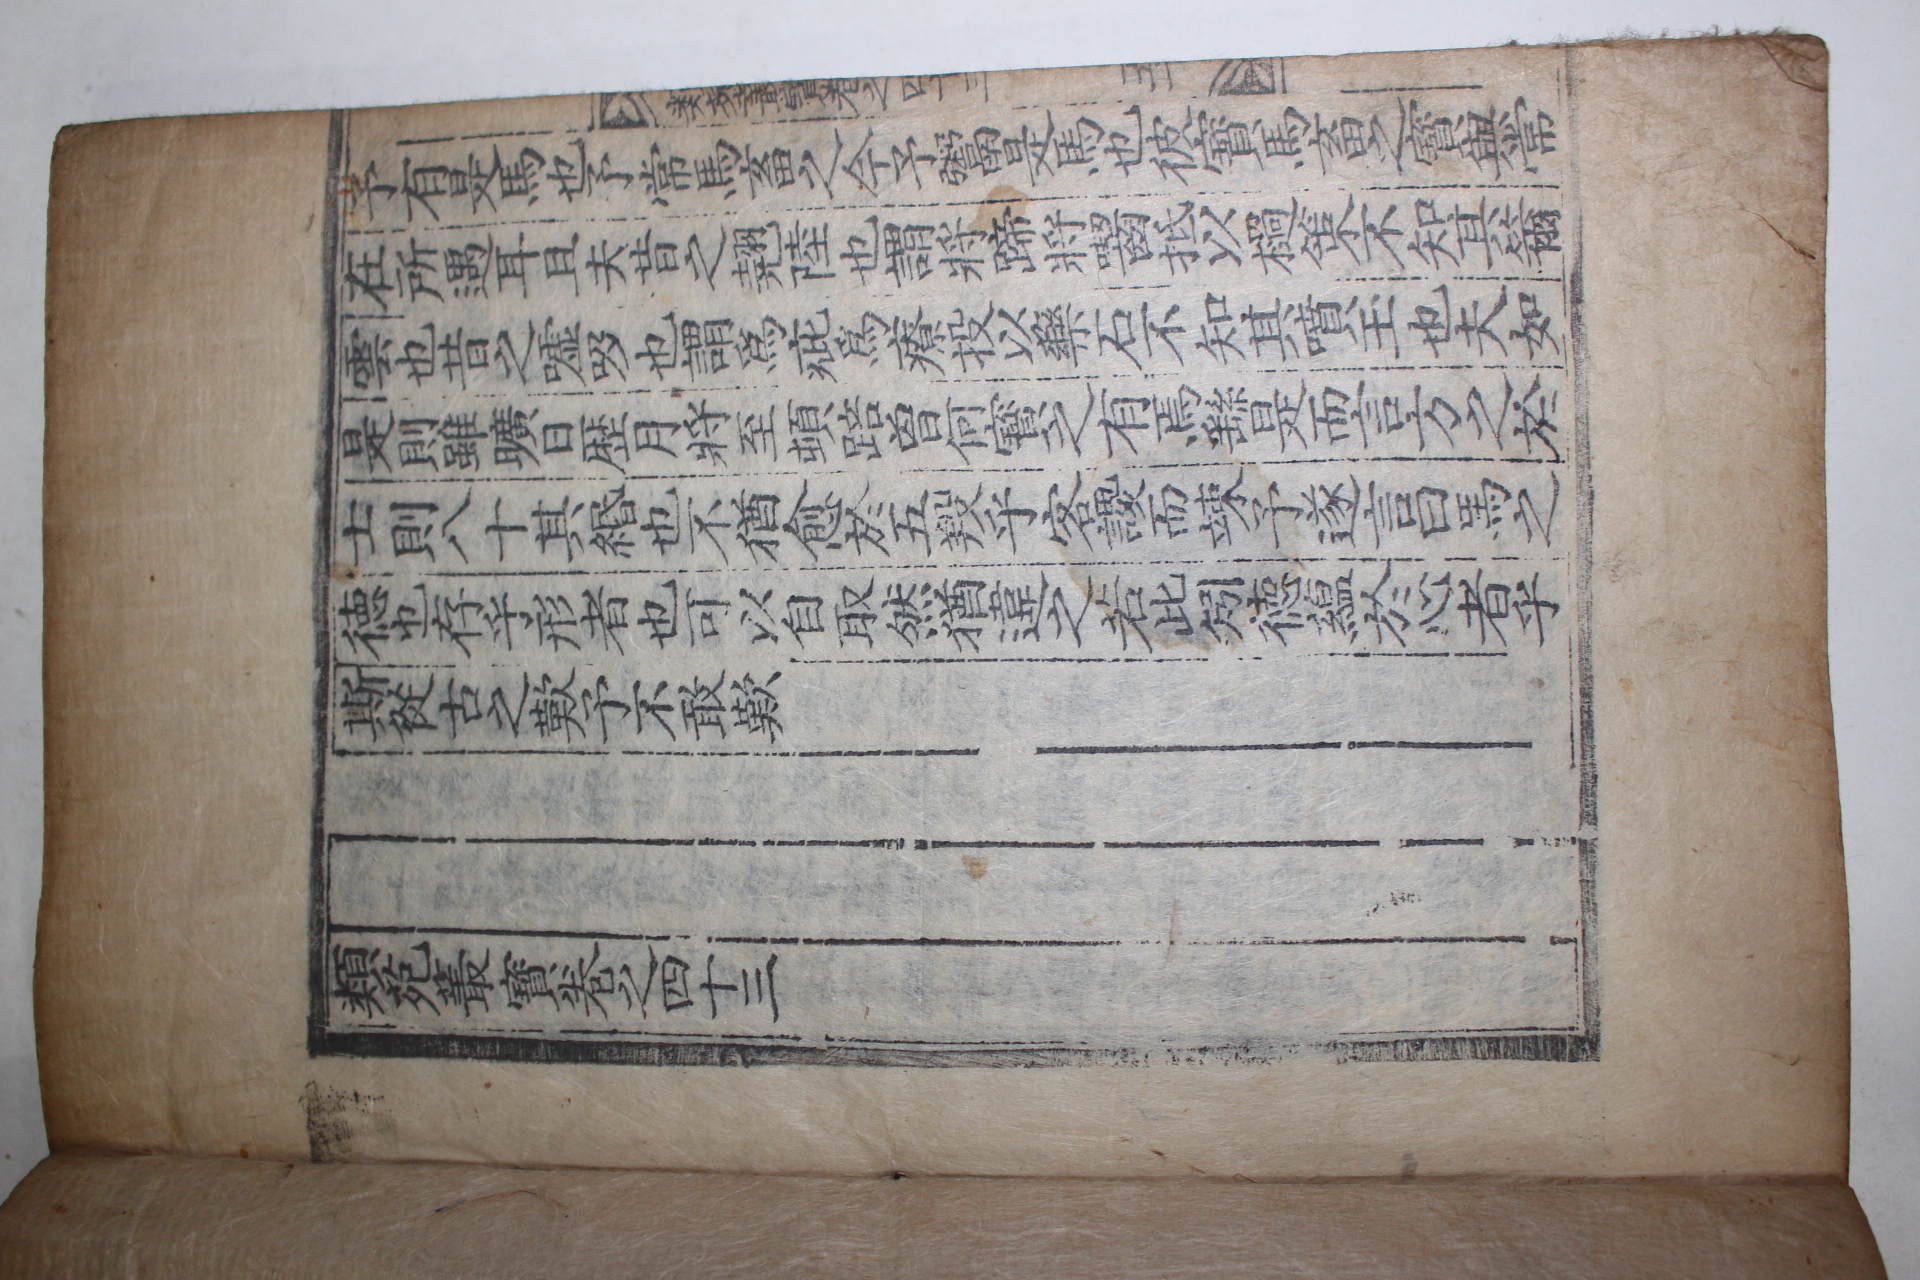 類苑叢寶卷之四十三
予有是馬也予常馬畜之今予鬻是馬也彼寶馬畜之寶與常
在所遇耳且夫昔之翹陸也謂將蹄將齧抵以檛策不知其籋
雲也昔之噓吸也謂爲疵爲療投以藥石不知其噴玉也夫如
是則雖曠日歷月將至頓踣曾何寶之有焉繇是而言方之於
士則八十其緡也不猶愈於五羖乎客謖而竦予遂言曰馬之
德也存乎形者也可以自取然猶違之若此矧德蘊於心者乎
斯從古之歎予不敢歎
類苑叢寶卷之四十三